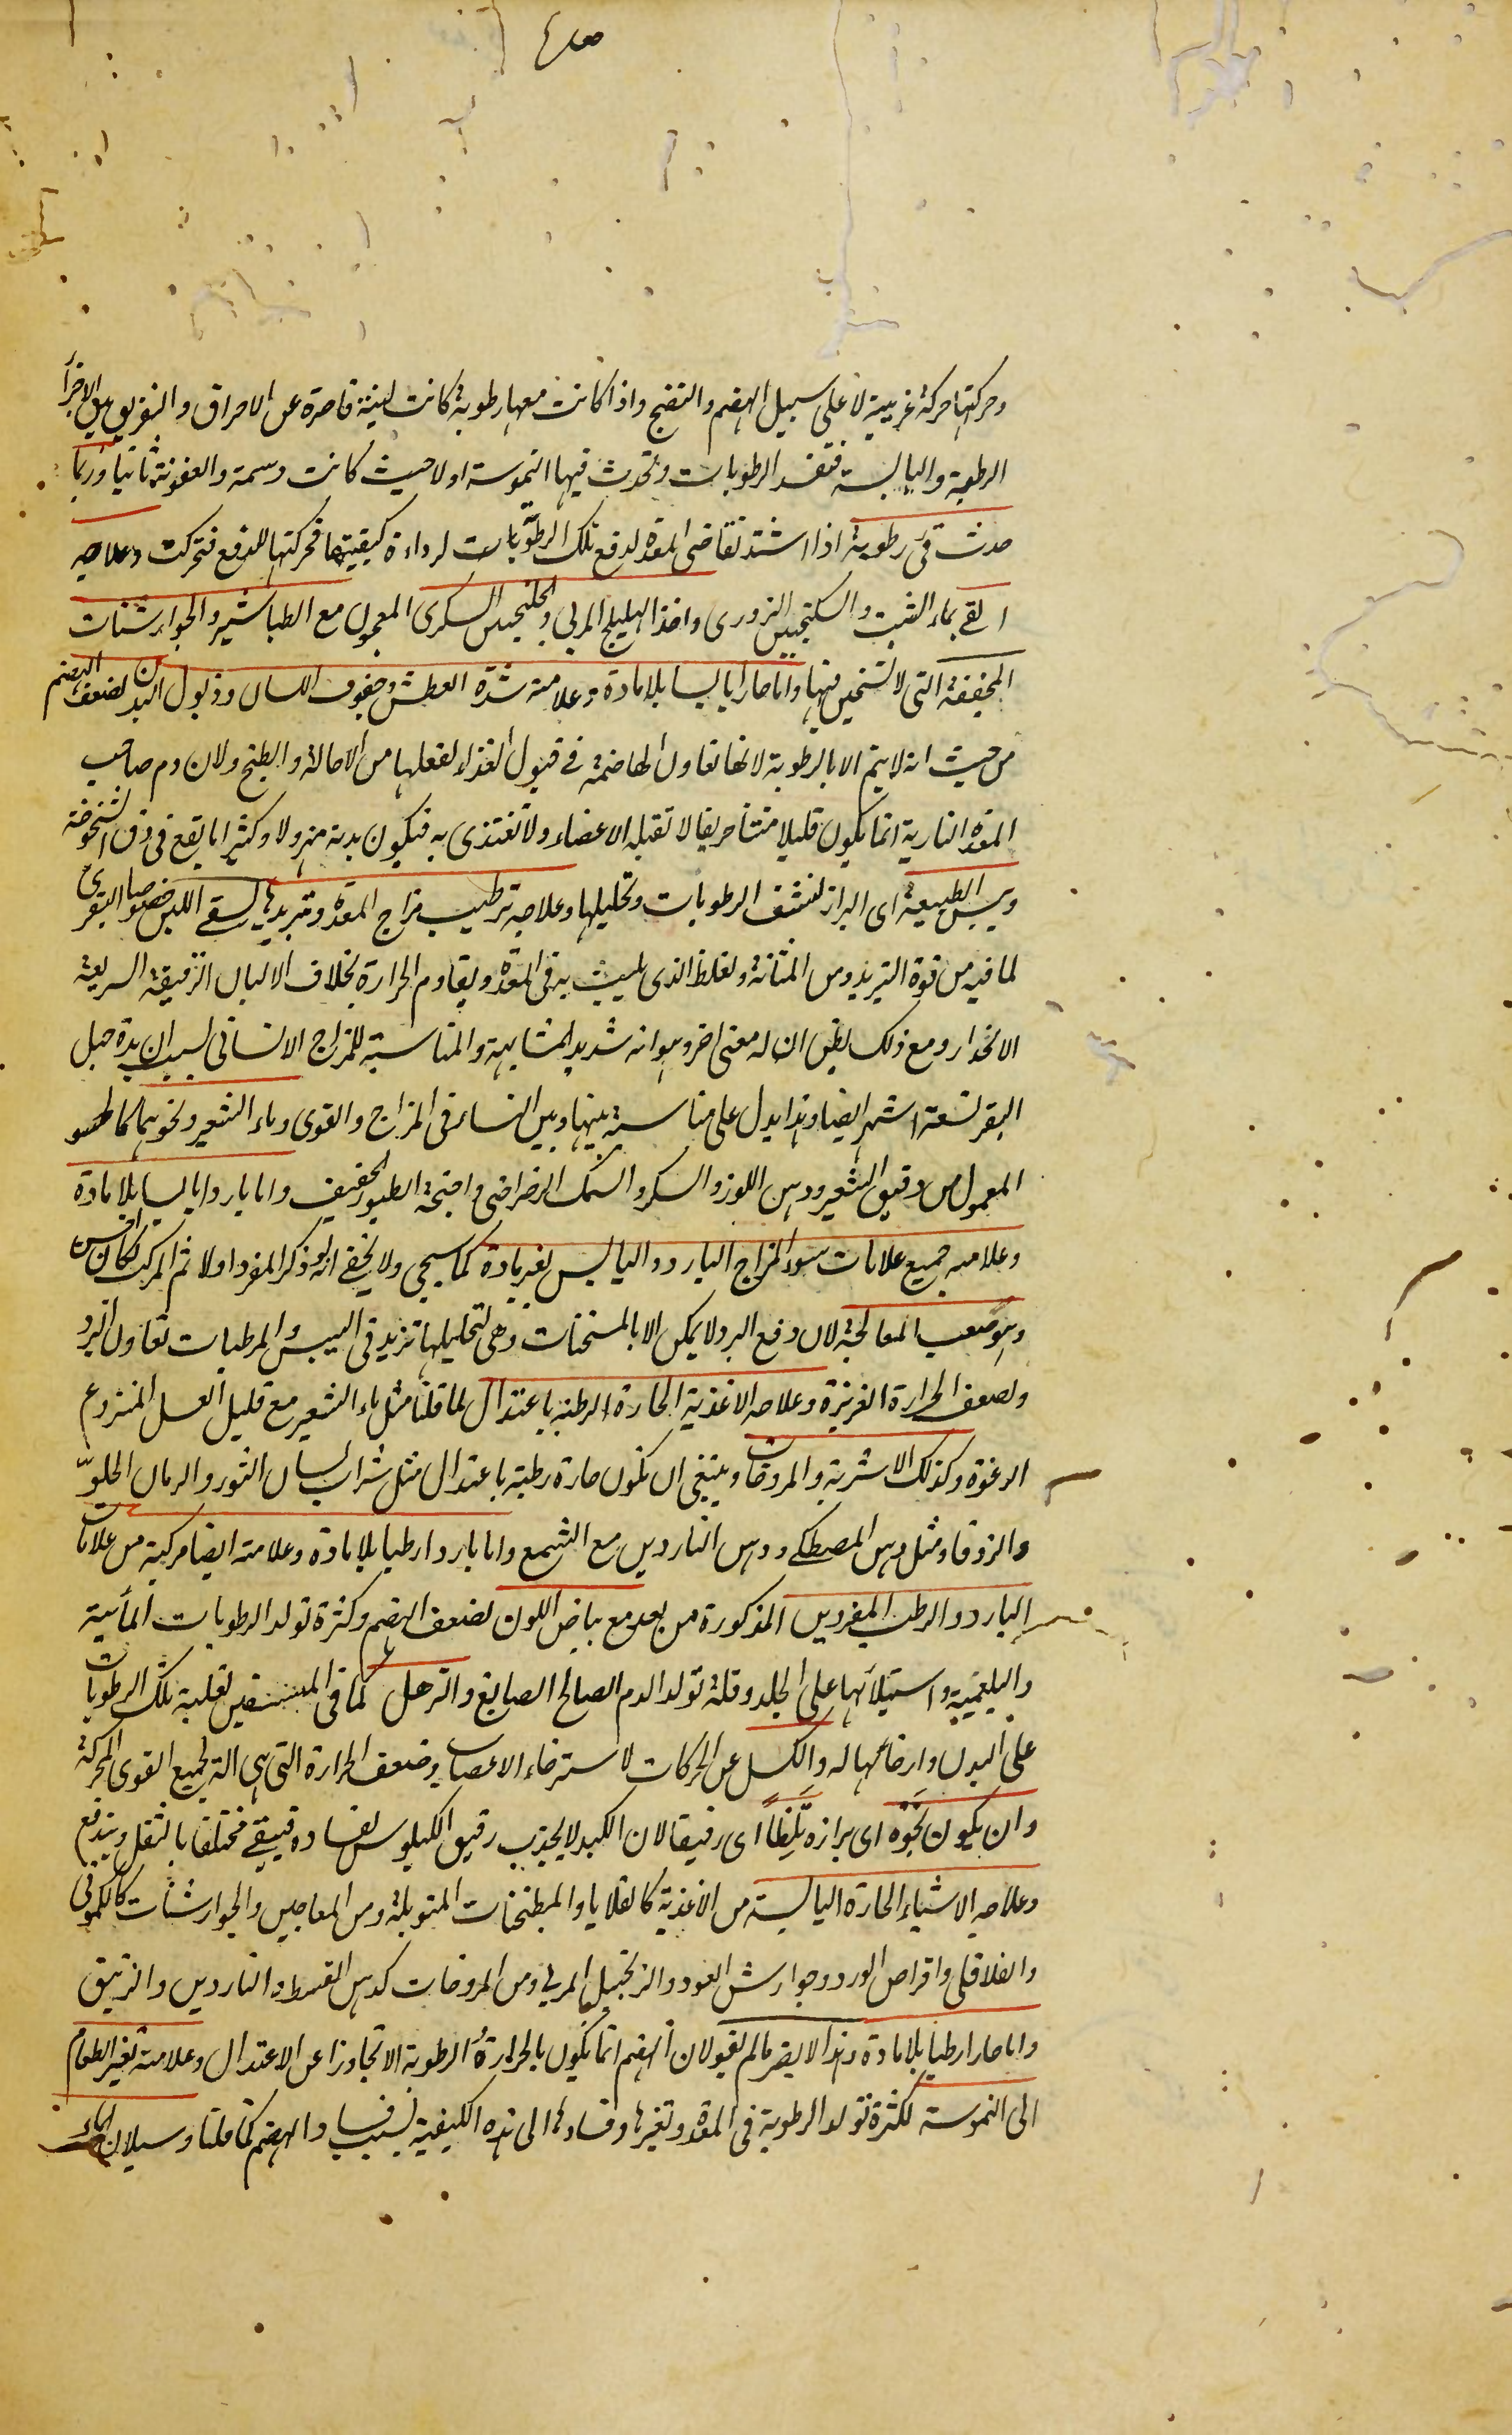 وحركتها حركة غريبية لا على سبيل الهضم والنضج واذا كانت معها رطوبة كانت لينة قاصرة عن الاحراق والتفريق بين الاجزأ
الرطبة واليابسة فتفسد الرطوبات وتحدث فيها النموسة اولا حيث كانت دسمة والعفونة ثانيا وربما
حدث قى رطوبة اذا اشتد تقاضى المعدة لدفع تلك الرطوبات لرداءة كيفيتها فحركتها للدفع فتحركت وعلاجه
القے بماء الشبت والسكنجبين البزورى واخذ الهليلج المربى والجلنجبين السكرى المعمول مع الطباشير والجوارشنات
المجففة التى لا تسخين فيها واما حارا يابسا بلا مادة وعلامته شدة العطش وجفوف اللسان وذبول البدن لضعف الهضم
من حيث انه لا يتم الا بالرطوبة لانها تعاون الهاضمة فے قبول الغذاء لفعلها من الاحالة والطبخ ولان دم صاحب
المعدة النارية انما يكون قليلا منتنا حريفا لا تقبله الاعضاء ولا تغتذى به فيكون بدنه مهزولا وكثيرا ما يقع فى دق الشيخوخة
ويبس الطبيعة اى البراز لنشف الرطوبات وتحليلها وعلاجه ترطيب مزاج المعدة وتبريدها بسقے اللبن خصوصا البقرى
لما فيه من قوة التبريد ومن المتانة ولغلظ الذى يلبث به فى المعدة ويقاوم الحرارة بخلاف الالبان الرقيقة السريعة
الانحدار ومع ذلك يظن ان له معنى اخر وهو انه شديد المشابهة والمناسبة للمزاج الانسانى لسبب ان مدة حبل
البقر تسعة اشهر ايضا وهذا يدل على مناسبة بينها وبين النساء فى المزاج والقوى وماء الشعير ونحوهما كالحسو
المعمول من دقيق الشعير ودهن اللوز والسكر والسمك الرضراضى واجنحة الطيور الخفيف واما باردا يابسا بلا مادة
وعلامته جميع علامات سوء المزاج البارد واليابس لغير مادة كما سيجى ولا يخفے انه لو ذكر المفرد اولا ثم المركب لكان احسن
وهو صعب المعالجة لان دفع البرد لا يمكن الا بالمسخنات وهى لتحليلها تزيد فى اليبس والمرطبات تعاون البرد
ولضعف الحرارة الغريزة وعلاجه الاغذية الحارة الرطبة باعتدال لما قلنا مثل ماء الشعير مع قليل العسل المنزوع
الرغوة وكذلك الاشربة والمروخات وينبغى ان تكون حارة رطبة باعتدال مثل شراب لسان الثور والرمان الحلو
والزوفا ومثل دهن المصطكے ودهن الناردين مع الشمع واما باردا رطبا بلا مادة وعلامته ايضا مركبة من علامات
البارد والرطب المفردين المذكورة من بعد مع بياض اللون لضعف الهضم وكثرة تولد الرطوبات المأئية
والبلغمية واستيلائها على الجلد وقلة تولد الدم الصالح الصابغ والترهل كما فى المستسقين لغلبة تلك الرطوبات
على البدن وارخائها له والكسل عن الحركات لاسترخاء الاعصاب وضعف الحرارة التى هى الة لجميع القوى المحركة
وان يكون نجوه اى برازه ثلطا اى رقيقا لان الكبد لا يجذب رقيق الكيلوس لفساده فيبقے مختلطا بالثفل ويندفع
وعلاجه الاشياء الحارة اليابسة من الاغذية كالقلايا والمطجنات المتوبلة ومن المعاجين والجوارشنات كالكمونى
والفلافلى واقراص الورد وجوارش العود والزنجبيل المربے ومن المروخات كدهن القسط والناردين والزنبق
واما حارا رطبا بلا مادة وهذا لا يضر ما لم يقو لان الهضم انما يكون بالحرارة الرطوبة الا تجاوزا عن الاعتدال وعلامته تغير الطعام
الى النموسة لكثرة تولد الرطوبة فى المعدة وتغيرها وفسادها الى هذه الكيفية بسبب فساد الهضم كما قلنا وسيلان الماء